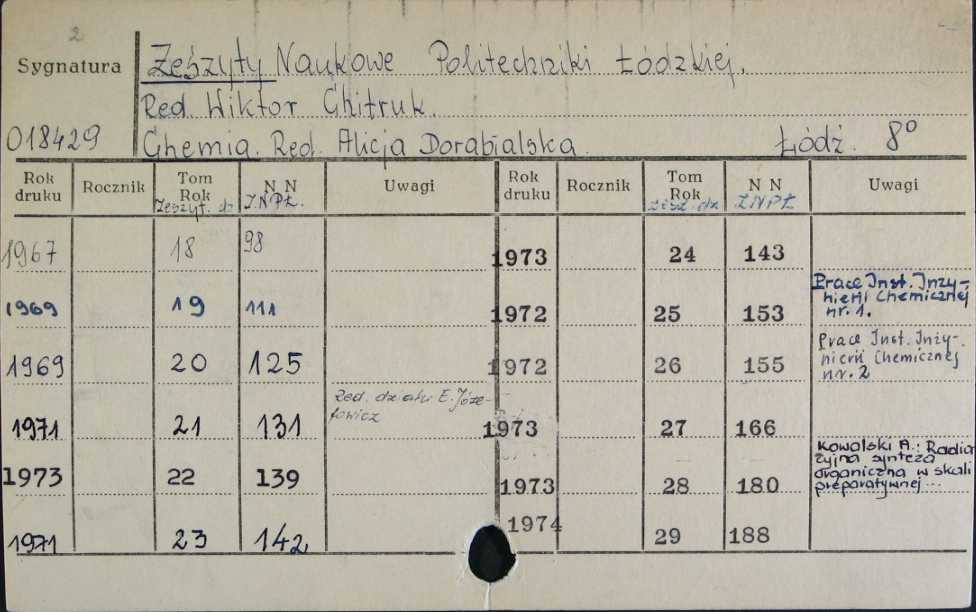 2
Sygnatura Zeszyty Naukowe Politechniki Łódzkiej.
Red. Wiktor Chitruk.
018429 Chemia. Red. Alicja Dorabialska. Łódź. 8°
Rok druku Rocznik Tom Rok Zeszyt. dz N N ZNPŁ. Uwagi Rok druku Rocznik Tom Rok zesz. dz N N ZNPŁ Uwagi
1967 18 98 1973 24 143
1969 19 111 1972 25 153 Prace Inst. Inży-
nierii Chemicznej
nr. 1.
1969 20 125 1972 26 155 Prace Inst. Inży-
nierii Chemicznej
nr. 2
1971 21 131 Red. działu E. Józe-
fowicz 1973 27 166
1973 22 139 1973 28 180 Kowalski A.: Radia
cyjna synteza
organiczna w skali
preparatywnej...
1971 23 142 1974 29 188